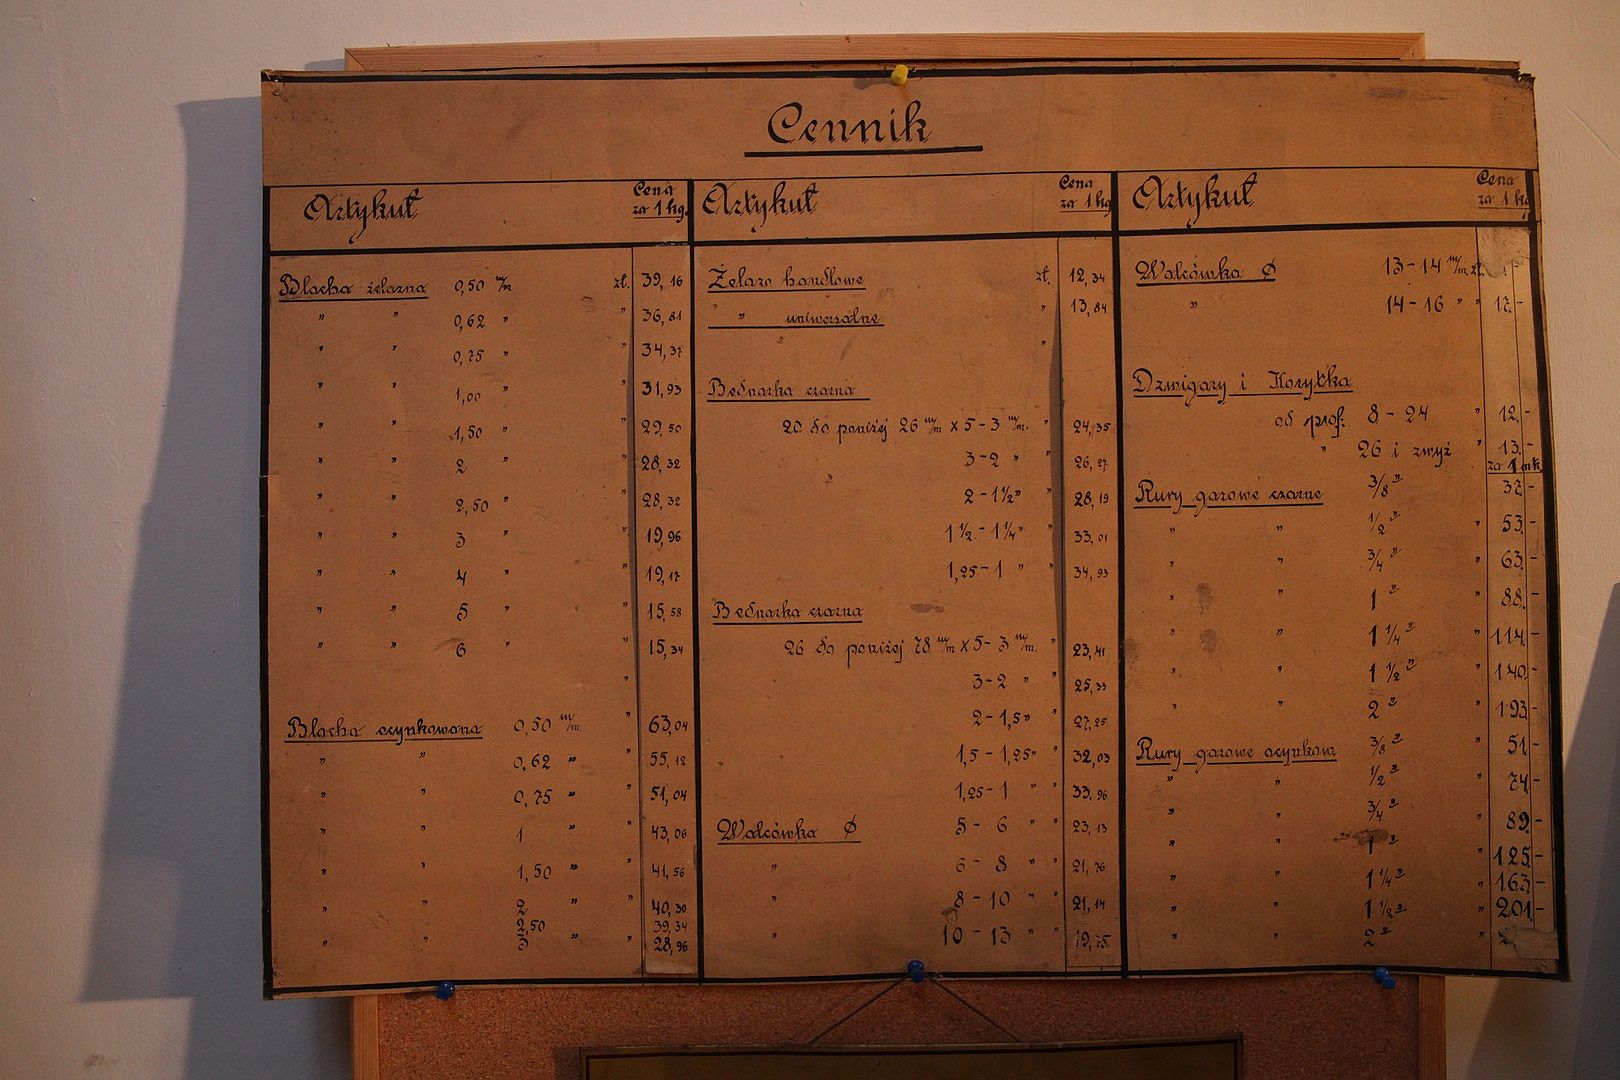 Cennik
Artykuł Cena za 1 kg.
Blacha żelazna 0,50 m/m zł. 39,16
" " 0,62 " " 36,81
" " 0,75 " " 34,37
" " 1,00 " " 31,93
" " 1,50 " " 29,50
" " 2 " " 28,32
" " 2,50 " " 28,32
" " 3 " " 19,96
" " 4 " " 19,17
" " 5 " " 15,58
" " 6 " " 15,34
"
Blacha ocynkowana 0,50 m/m. " 63,04
" " 0,62 " " 55,12
" " 0,75 " " 51,04
" " 1 " " 43,06
" " 1,50 " " 41,56
" " 2 " " 40,30
2,50 39,34
" " 3 " " 28,96
Artykuł Cena za 1 kg
Żelazo handlowe zł. 12,34
" uniwersalne " 13,84
"
Bednarka czarna
20 do poniżej 26 m/m x 5-3 m/m. " 24,35
3-2 " " 26,27
2-1½" " 28,19
1½-1¼" " 33,01
1,25-1 " " 34,93
Bednarka czarna
26 do poniżej 78 m/m x 5-3 m/m. " 23,41
3-2 " " 25,33
2-1,5" " 27,25
1,5-1,25" " 32,03
1,25-1 " " 33,96
Walcówka Ø 5-6 " " 23,13
" 6-8 " " 21,76
" 8-10 " " 21,14
" 10-13 " " 19,75
Artykuł Cena za 1 kg
Walcówka Ø 13-14 m/m. zł.
" 14-16 " " 17.-
Dzwigary i Korytka
od prof. 8-24 " 12.-
" 26 i zwyż " 13.-
za 1 mb.
Rury gazowe czarne 3/8" " 37.-
" " ½" " 53.-
" " ¾" " 63.-
" " 1" " 88.-
" " 1¼" " 114.-
" " 1½" " 140.-
" " 2" " 193.-
Rury gazowe ocynkow. 3/8" " 51.-
" " ½" " 74.-
" " ¾" " 89.-
" " 1" " 125.-
" " 1¼" 163.-
" " 1½" " 201.-
" " 2" "